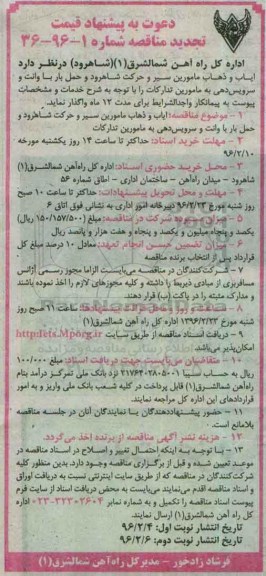 دعوت به پیشنهاد قیمت
تجدید مناقصه شماره ۱-۹۶-۳۶
اداره کل راه آهن شمالشرق(۱)(شاهرود) درنظر دارد
ایاب و ذهاب مامورین سیر و حرکت شاهرود و حمل بار با وانت و
سرویس‌دهی به مامورین تدارکات را با توجه به شرح خدمات و مشخصات
پیوست به پیمانکار واجدالشرایط برای مدت ۱۲ ماه واگذار نماید.
۱ - موضوع مناقصه: ایاب و ذهاب مامورین سیر و حرکت شاهرود و
حمل بار با وانت و سرویس‌دهی به مامورین تدارکات
۲ - مهلت خرید اسناد: حداکثر تا ساعت ۱۴ روز یکشنبه مورخه
۹۶/۲/۱۰
۳ - محل خرید حضوری اسناد: اداره کل راه‌آهن شمالشرق(۱)
شاهرود - میدان راه‌آهن - ساختمان اداری - اطاق شماره ۵۶
۴ - مهلت و محل تحویل پیشنهادات: حداکثر تا ساعت ۱۰ صبح
روز شنبه مورخ ۹۶/۲/۲۳ دبیرخانه امور اداری به نشانی فوق اتاق ۶
۵ - میزان سپرده شرکت در مناقصه: مبلغ (۱۵۰/۱۵۷/۵۰۰ ریال)
یکصد و پنجاه میلیون و یکصد و پنجاه و هفت هزار و پانصد ریال
۶ - میزان تضمین حسن انجام تعهد: معادل ۱۰ درصد مبلغ کل
قرارداد پس از انتخاب برنده مناقصه
۷ - شرکت‌کنندگان در مناقصه می‌بایست الزاما مجوز رسمی آژانس
مسافربری از مبادی ذیربط را داشته و کلیه مجوزهای لازم را اخذ نموده باشند
و مدارک مثبته را در پاکت (ب) قرار دهند.
۸ - ساعت ۱۱ صبح روز
شنبه مورخ ۱۳۹۶/۲/۲۳ اداره کل راه آهن شمالشرق(۱)
۹ - دریافت اسناد مناقصه از طریق سایت http:Iets.Mporg.ir
امکان‌پذیر می‌باشد.
۱۰ - متقاضیان می‌بایست جهت دریافت اسناد: مبلغ ۱۰۰/۰۰۰
ریال به حساب سیبا ۲۱۷۶۴۰۲۸۰۵۰۰۱ نزد بانک ملی تمرکز درآمد بنام
راه‌آهن شمالشرق(۱) قابل پرداخت در کلیه شعب بانک ملی واریز و به امور
قراردادهای این اداره کل مراجعه نمایند.
۱۱ - حضور پیشنهاددهندگان یا نمایندگان آنان در جلسه مناقصه
بلامانع است.
۱۲ - هزینه نشر آگهی مناقصه از برنده اخذ می‌گردد.
۱۳ - با توجه به اینکه احتمال تغییر و اصلاح در اسناد مناقصه در
موعد تعیین شده و قبل از برگزاری مناقصه وجود دارد. بدین منظور کلیه
شرکت‌کنندگان در مناقصه که از طریق سایت اینترنتی نسبت به دریافت اوراق
و اسناد مناقصه اقدم می‌نمایند می‌بایست به محض دریافت اسناد از سایت فرم
پیوست اسناد مناقصه را تکمیل و به شماره نمابر ۳۲۳۰۲۶۰۴-۰۲۳ اداره
کل راه آهن شمالشرق(۱) ارسال نمایند.
تاریخ انتشار نوبت اول: ۹۶/۲/۴
تاریخ انتشار نوبت دوم: ۹۶/۲/۶
فرشاد زادخور - مدیرکل راه‌آهن شمالشرق(۱)